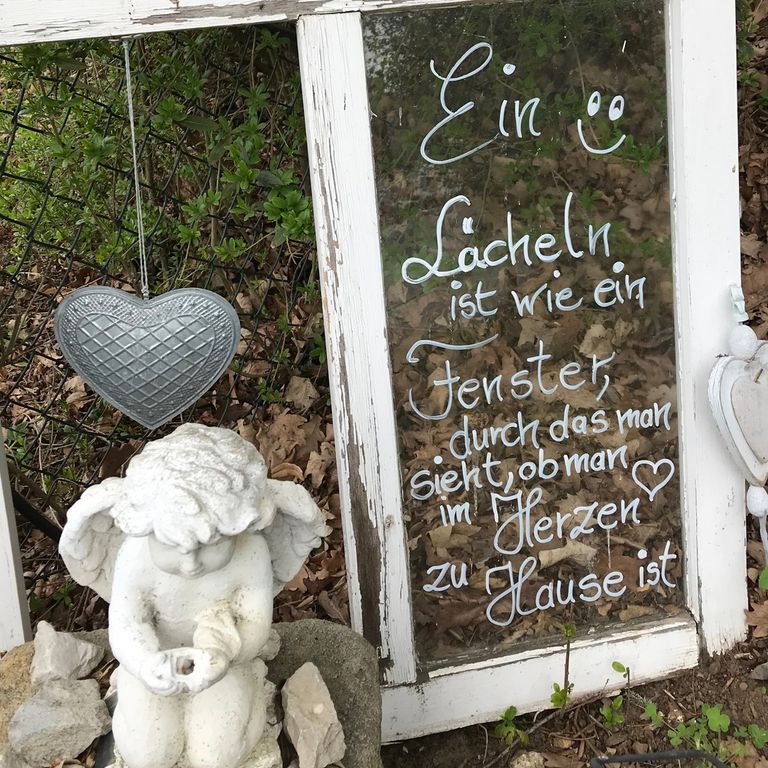 Ein
Lächeln
ist wie ein
Fenster,
durch das man
sieht, ob man
im Herzen
zu Hause ist